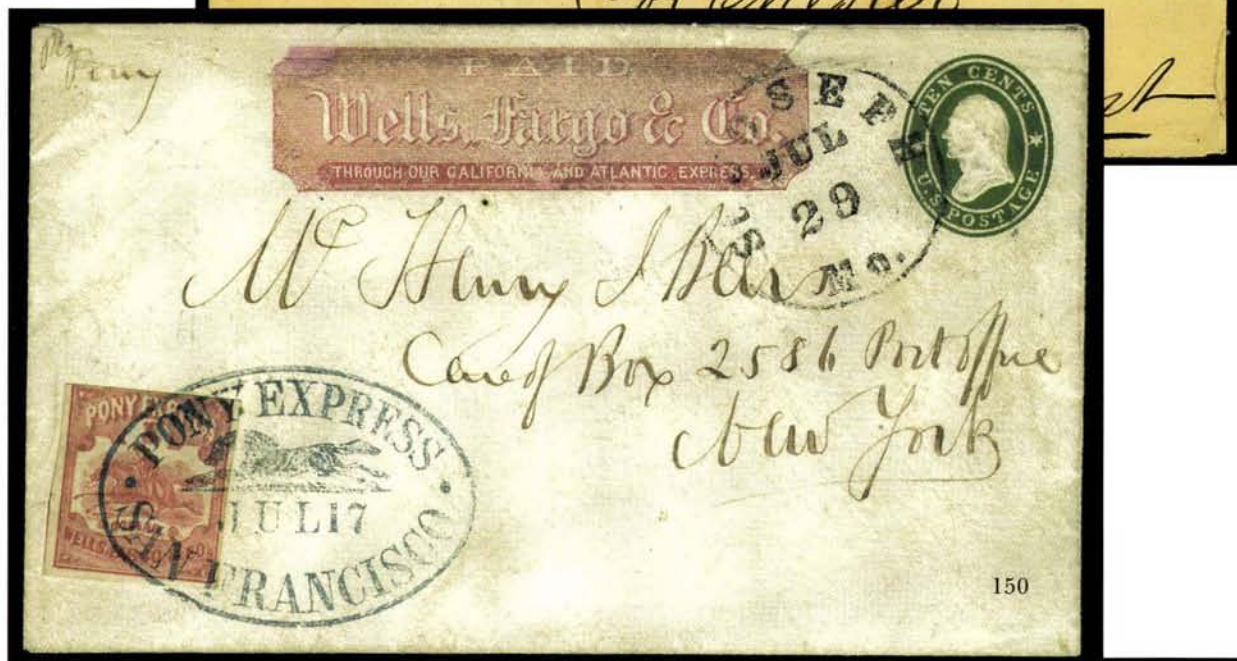 per
Pony
PAID
Wells, Fargo & Co.
THROUGH OUR CALIFORNIA AND ATLANTIC EXPRESS.
ST JOSEPH
JUL
29
Mo.
TEN CENTS
U.S. POSTAGE
Mr Henry I
Care of Box 2586 Post Office
New York
PONY EXPRESS
WELLS, FARGO & Co.
PONY EXPRESS
JUL 17
SAN FRANCISCO
150